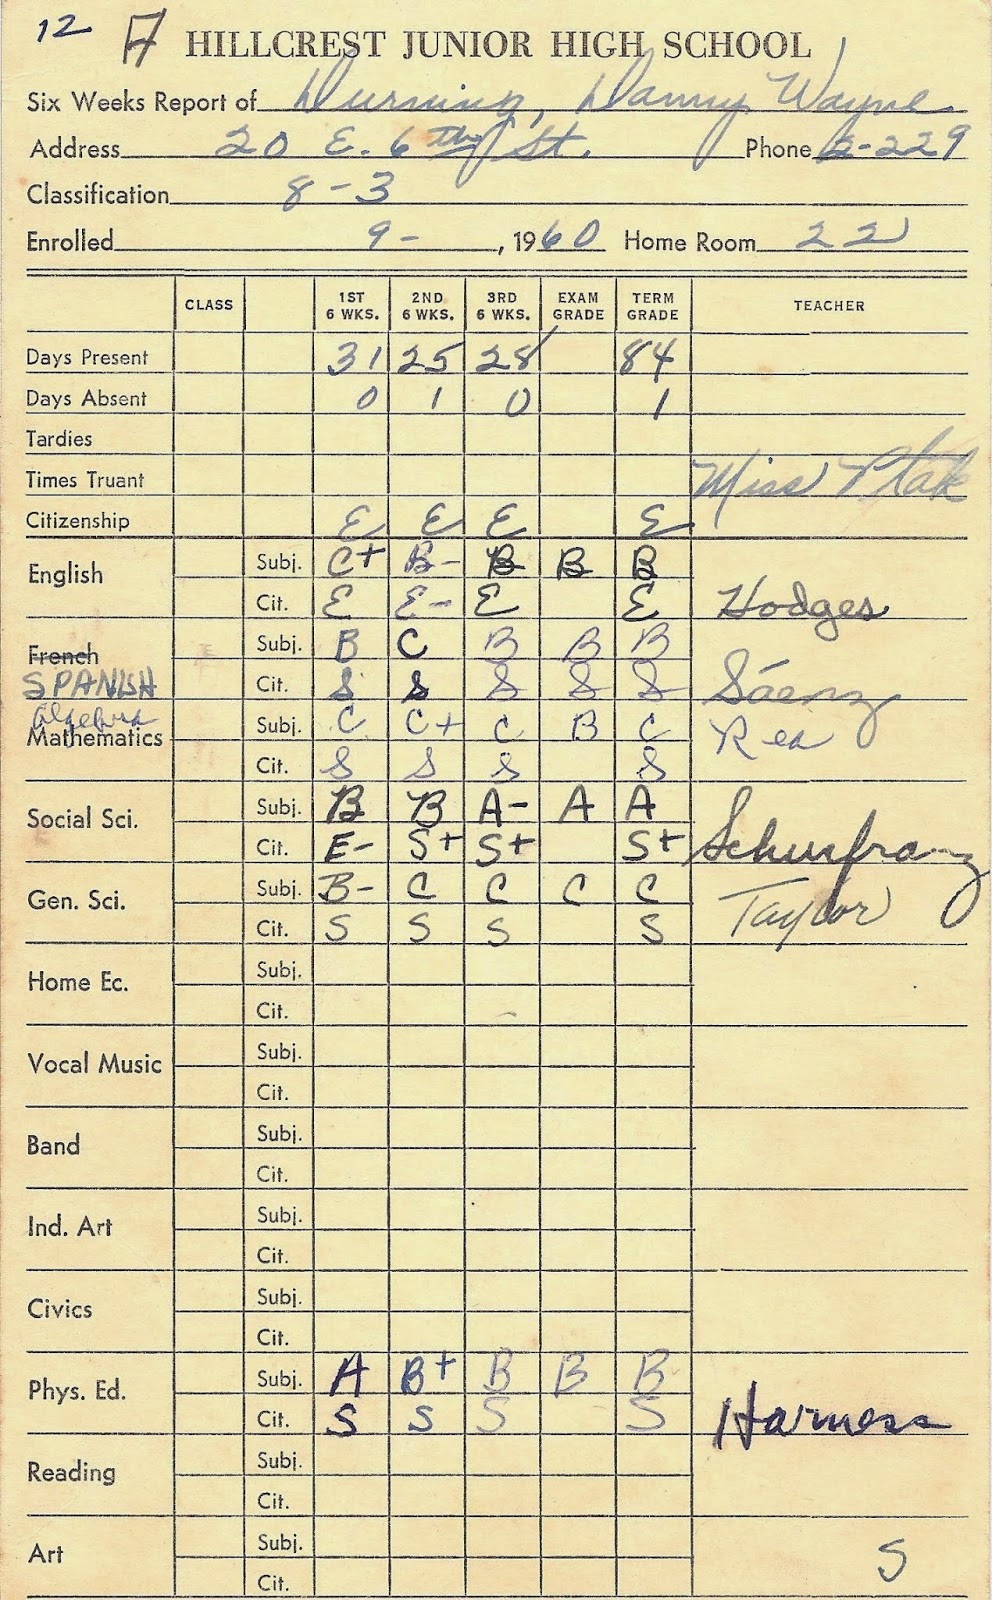 12 A HILLCREST JUNIOR HIGH SCHOOL
Six Weeks Report of Durning, Danny Wayne
Address 20 E. 6th St. Phone 2-229
Classification 8-3
Enrolled 9- , 1960 Home Room 22
CLASS 1ST 6 WKS. 2ND 6 WKS. 3RD 6 WKS. EXAM GRADE TERM GRADE TEACHER
Days Present 31 25 28 84
Days Absent 0 1 0 1
Tardies
Times Truant Miss Ptak
Citizenship E E E E
English Subj. C+ B- B B B
Cit. E E- E E Hodges
French Subj. B C B B B
SPANISH Cit. S S S S S Sáenz
Algebra
Mathematics Subj. C C+ C B C Rea
Cit. S S S S
Social Sci. Subj. B B A- A A
Cit. E- S+ S+ S+
Gen. Sci. Subj. B- C C C C Taylor
Cit. S S S S
Home Ec. Subj.
Cit.
Vocal Music Subj.
Cit.
Band Subj.
Cit.
Ind. Art Subj.
Cit.
Civics Subj.
Cit.
Phys. Ed. Subj. A B+ B B B
Cit. S S S S Harness
Reading Subj.
Cit.
Art Subj. S
Cit.